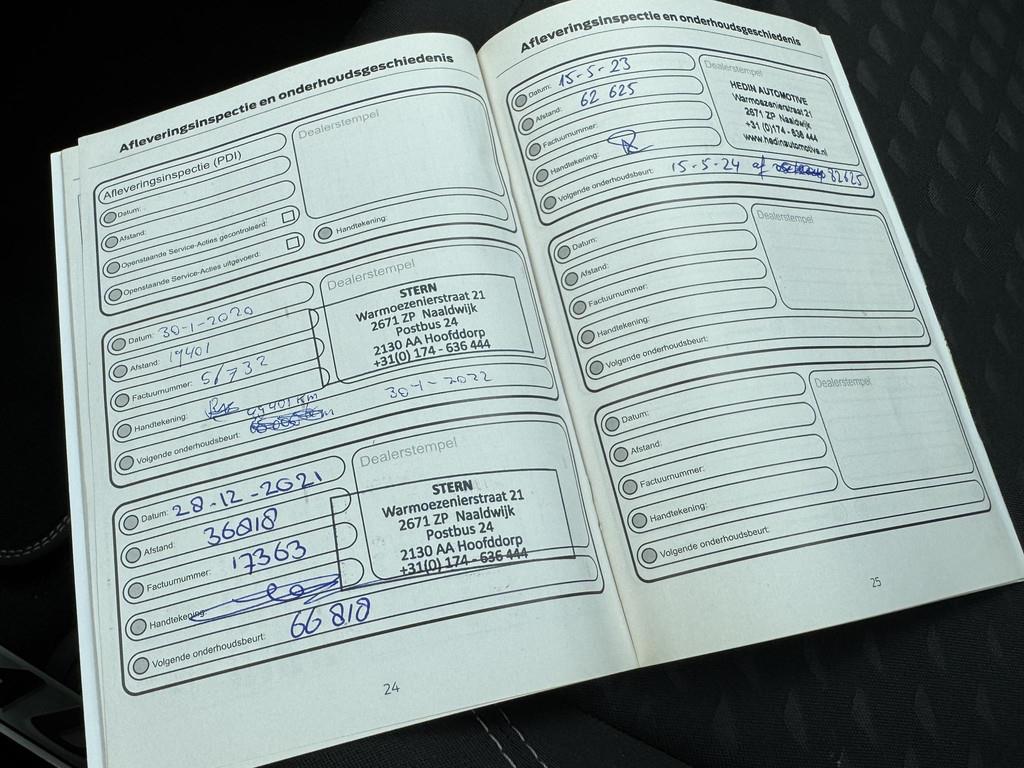 Afleveringsinspectie en onderhoudsgeschiedenis
Afleveringsinspectie (PDI)
Dealerstempel
Datum:
Afstand:
Openstaande Service-Acties gecontroleerd:
Openstaande Service-Acties uitgevoerd:
Handtekening:
Dealerstempel
Datum: 30-1-2020
Afstand: 19401
Factuurnummer: 51732
Handtekening:
Volgende onderhoudsbeurt: 49401 km 30-1-2022
STERN
Warmoezenierstraat 21
2671 ZP Naaldwijk
Postbus 24
2130 AA Hoofddorp
+31(0) 174 - 636 444
Dealerstempel
Datum: 28-12-2021
Afstand: 36818
Factuurnummer: 17363
Handtekening:
Volgende onderhoudsbeurt: 66 818
STERN
Warmoezenierstraat 21
2671 ZP Naaldwijk
Postbus 24
2130 AA Hoofddorp
+31(0) 174 - 636 444
24
Afleveringsinspectie en onderhoudsgeschiedenis
Dealerstempel
Datum: 15-5-23
Afstand: 62 625
Factuurnummer:
Handtekening:
Volgende onderhoudsbeurt: 15-5-24 of 82625
HEDIN AUTOMOTIVE
Warmoezenierstraat 21
2671 ZP Naaldwijk
+31 (0)174 - 636 444
www.hedinautomotive.nl
Dealerstempel
Datum:
Afstand:
Factuurnummer:
Handtekening:
Volgende onderhoudsbeurt:
Dealerstempel
Datum:
Afstand:
Factuurnummer:
Handtekening:
Volgende onderhoudsbeurt:
25